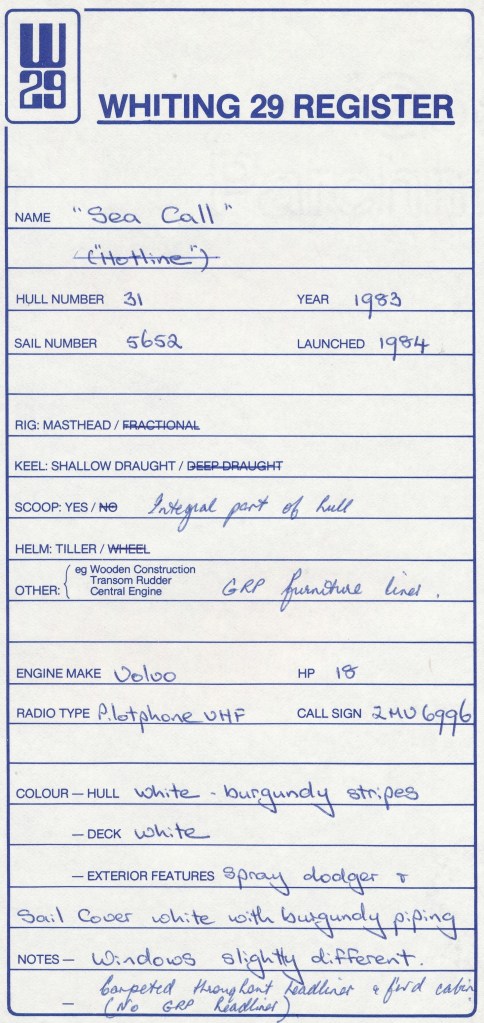 W
29
WHITING 29 REGISTER
NAME "Sea Call"
("Hotline")
HULL NUMBER 31 YEAR 1983
SAIL NUMBER 5652 LAUNCHED 1984
RIG: MASTHEAD / FRACTIONAL
KEEL: SHALLOW DRAUGHT / DEEP DRAUGHT
SCOOP: YES / NO Integral part of hull
HELM: TILLER / WHEEL
OTHER: { eg Wooden Construction
Transom Rudder
Central Engine GRP furniture liner.
ENGINE MAKE Volvo HP 18
RADIO TYPE Pilotphone VHF CALL SIGN ZMU 6996
COLOUR — HULL white - burgundy stripes
— DECK white
— EXTERIOR FEATURES Spray dodger &
Sail Cover white with burgundy piping
NOTES — Windows slightly different.
— Carpeted throughout headliner & fwd cabin
(No GRP headliner)